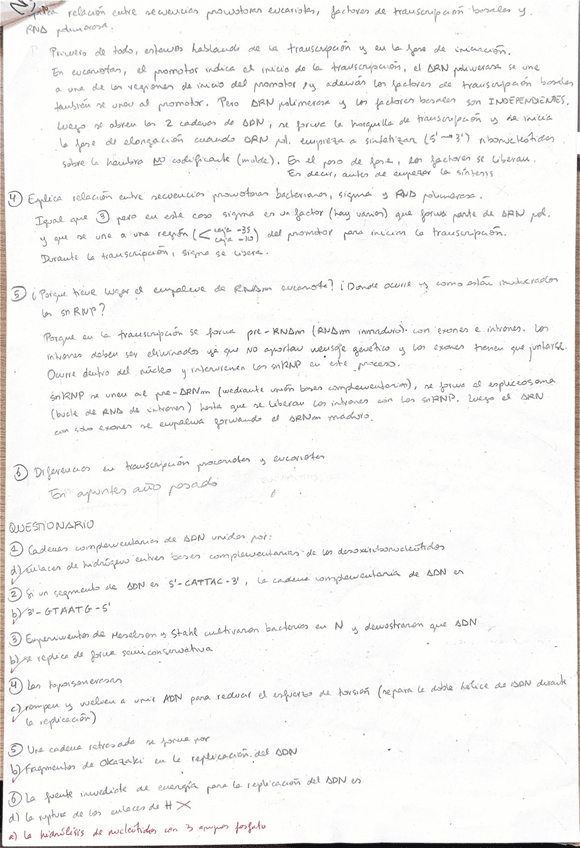 relación entre secuencias promotoras eucariotas, factores de transcripción basales y
RNA polimerasa.
Primero de todo, estamos hablando de la transcripción y en la fase de iniciación.
En eucariotas, el promotor indica el inicio de la transcripción, el ARN polimerasa se une
a una de las regiones de inicio del promotor, y además los factores de transcripción basales
también se unen al promotor. Pero ARN polimerasa y los factores basales son INDEPENDIENTES.
Luego se abren las 2 cadenas de ADN, se forma la horquilla de transcripción y se inicia
la fase de elongación cuando ARN pol. empieza a sintetizar (5'→3') ribonucleótidos
sobre la hembra NO codificante (molde). En el paso de fase, los factores se liberan.
Es decir, antes de empezar la síntesis
④ Explica relación entre secuencias promotoras bacterianas, sigma y RNA polimerasa.
Igual que ③ pero en este caso sigma es un factor (hay varios) que forma parte de ARN pol.
y que se une a una región (< caja -35 caja -10) del promotor para iniciar la transcripción.
Durante la transcripción, sigma se libera.
⑤ ¿Porque tiene lugar el empalme de RNAm eucariota? ¿Donde ocurre y como están involucrados
los snRNP?
Porque en la transcripción se forma pre-RNAm (RNAm inmaduro) con exones e intrones. Los
intrones deben ser eliminados ya que no aportan mensaje genético y los exones tienen que juntarse.
Ocurre dentro del núcleo y intervienen los snRNP en este proceso.
snRNP se unen al pre-ARNm (mediante unión bases complementarias), se forma el espliceosoma
(bucle de RNA de intrones) hasta que se liberan los intrones con los snRNP. Luego el ARN
con solo exones se empalma formando el ARNm maduro.
⑥ Diferencias en transcripción procariotas y eucariotas
En apuntes año pasado
QUESTIONARIO
① Cadenas complementarias de ADN unidas por:
d) Enlaces de hidrógeno entres bases complementarias de los desoxirribonucleótidos
② Si un segmento de ADN es 5'-CATTAC-3', la cadena complementaria de ADN es
b) 3'-GTAATG-5'
③ Experimentos de Meselson y Stahl cultivaron bacterias en N y demostraron que ADN
b) se replica de forma semiconservativa
④ Las topoisomerasas
c) rompen y vuelven a unir ADN para reducir el esfuerzo de torsión (separa la doble hélice de ADN durante
la replicación)
⑤ Una cadena retrasada se forma por
b) Fragmentos de Okazaki en la replicación del ADN
⑥ La fuente inmediata de energía para la replicación del ADN es
d) la ruptura de los enlaces de H X
a) la hidrólisis de nucleótidos con 3 grupos fosfato